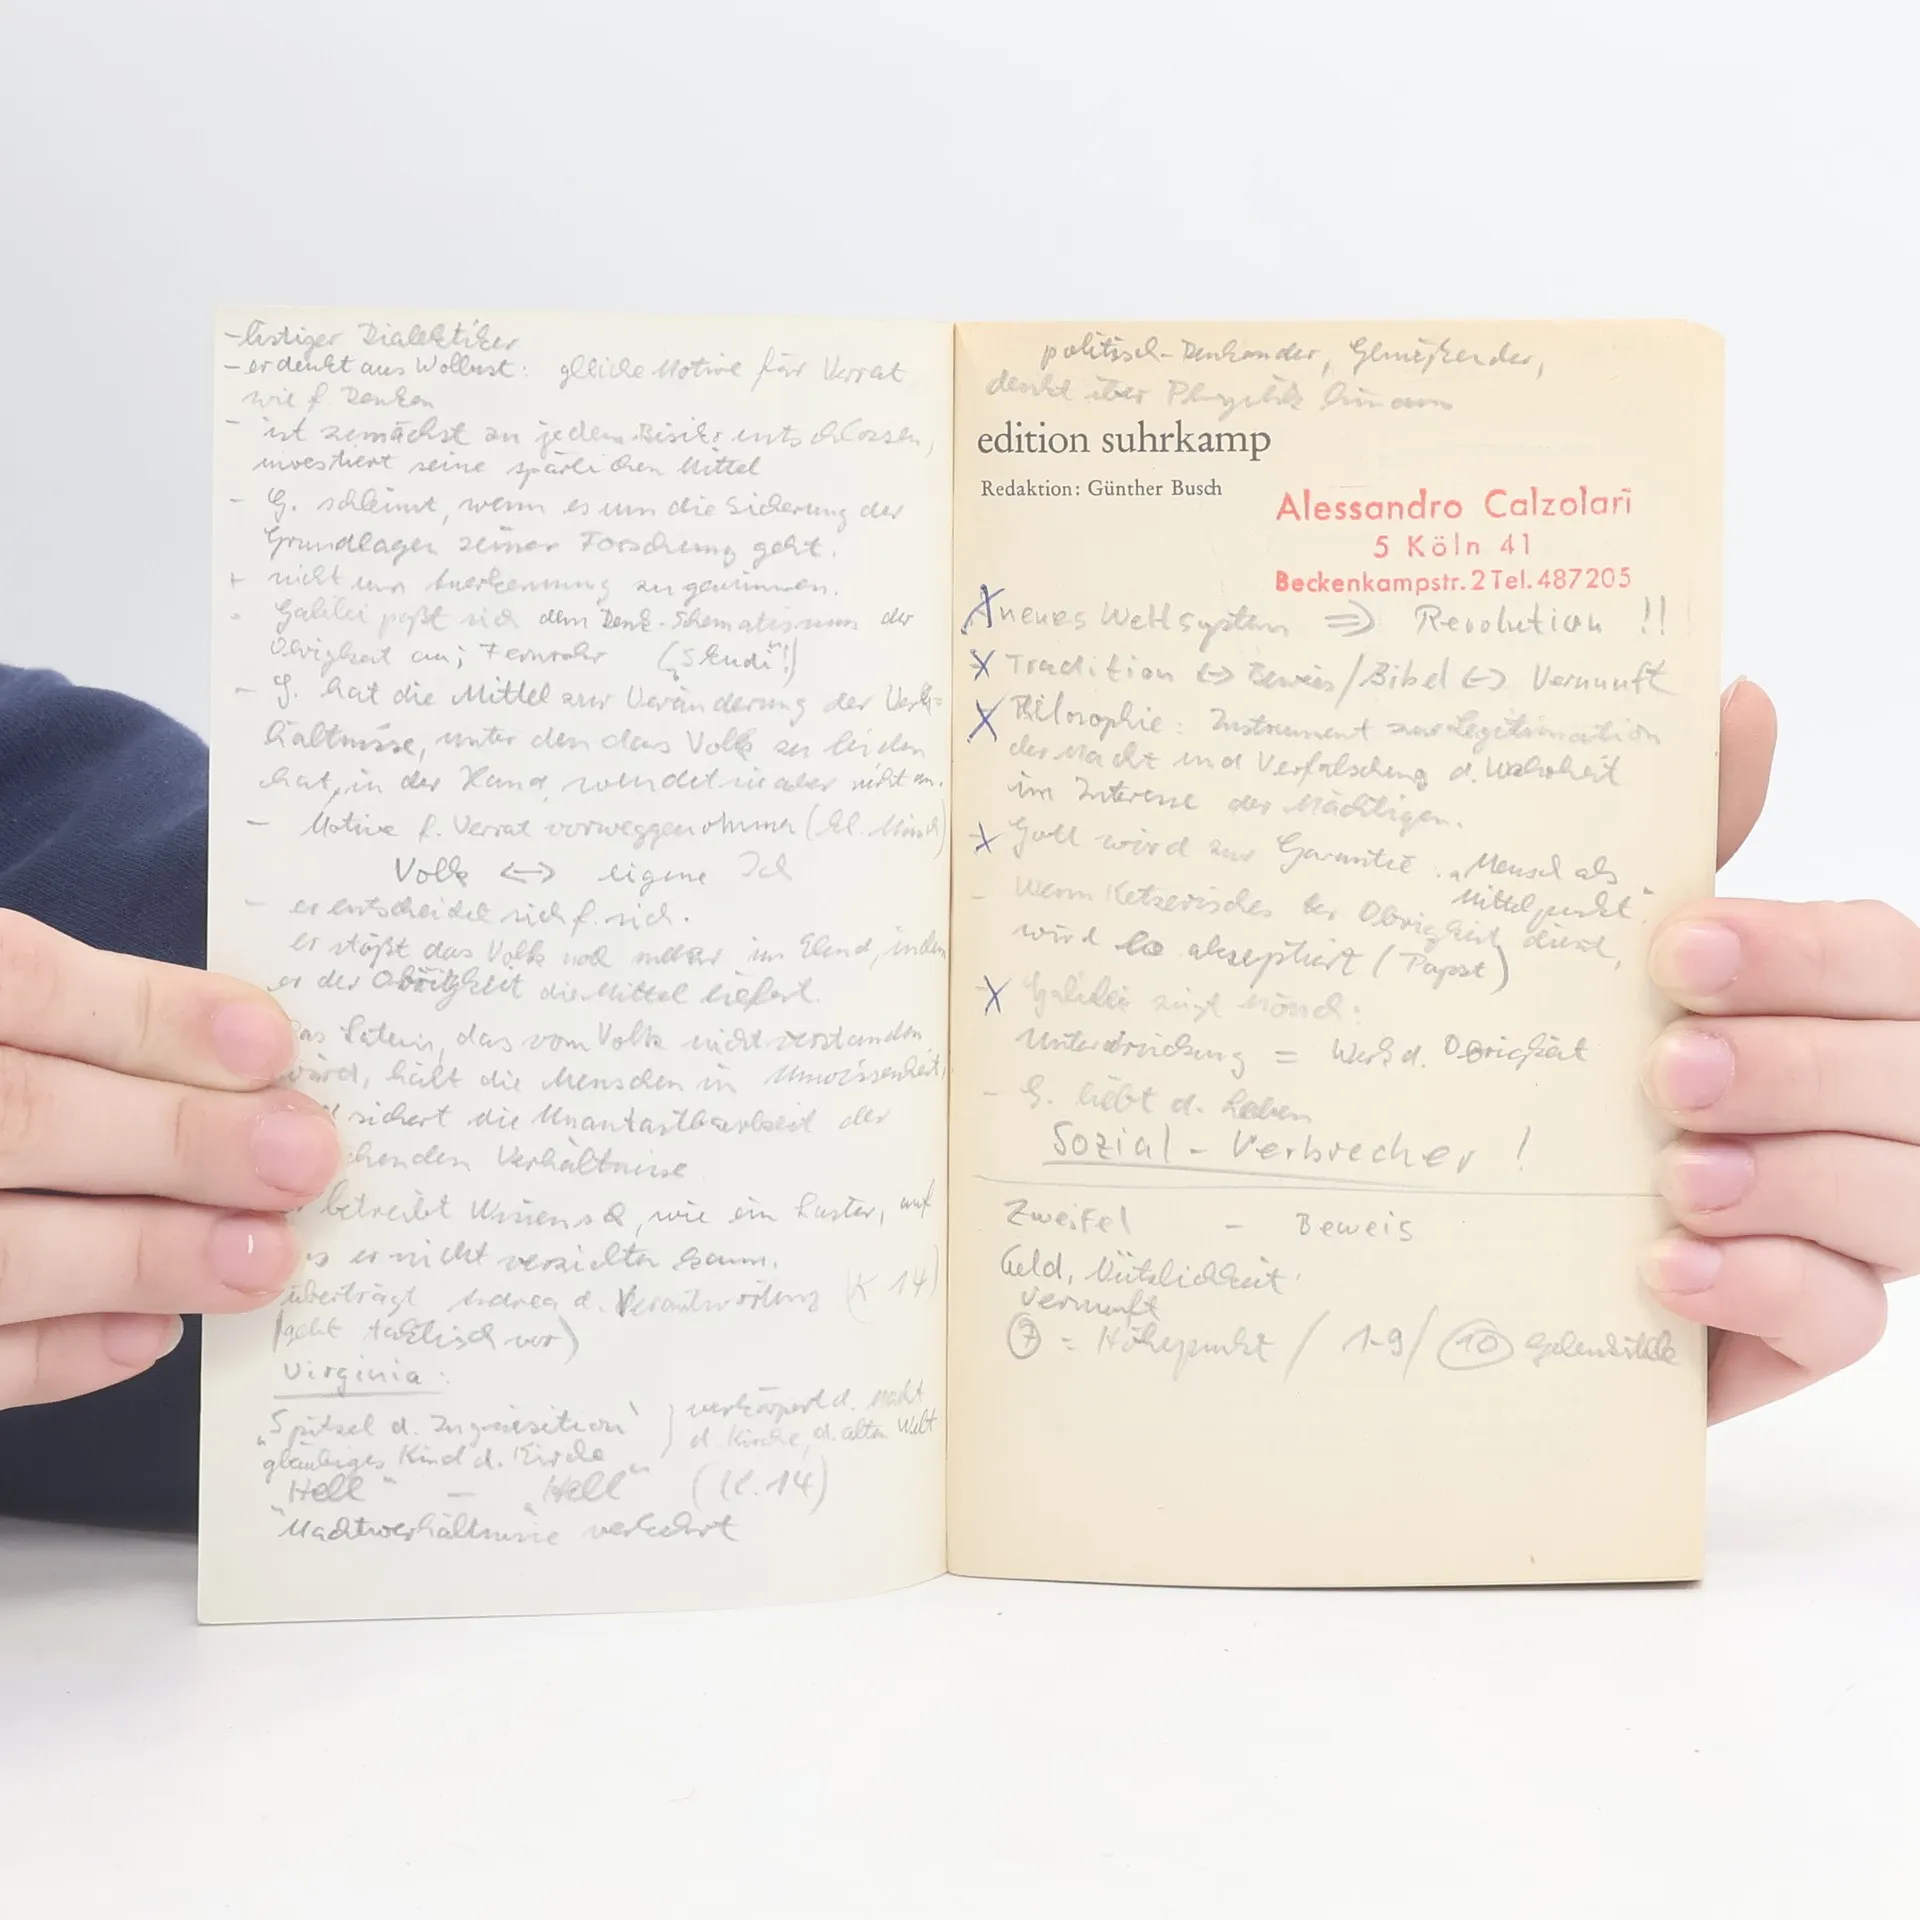 - listiger Dialektiker
- er denkt aus Wollust: gleiche Motive für Verrat
wie f. Denken
- ist zunächst zu jedem Risiko entschlossen,
investiert seine spärlichen Mittel
- G. schleimt, wenn es um die Sicherung der
Grundlagen seiner Forschung geht.
+ nicht um Anerkennung zu gewinnen.
- Galilei paßt sich dem Denk-Schematismus der
Obrigkeit an; Fernrohr
- G. hat die Mittel zur Veränderung der Verh-
hältnisse, unter den das Volk zu leiden
hat, in der Hand, wendet sie aber nicht an.
- Motive f. Verrat vorweggenommen (kl. Mönch)
Volk <-> eigene Ich
- er entscheidet sich f. sich.
er stößt das Volk noch mehr ins Elend, indem
er der Obrigkeit die Mittel liefert.
Latein, das vom Volk nicht verstanden
wird, hält die Menschen in Unwissenheit,
sichert die Unantastbarkeit der
Verhältnisse
betreibt Wissensch, wie ein Laster, auf
er nicht verzichten kann.
überträgt Andrea d. Verantwortung (K 14)
(geht taktisch vor)
Virginia:
"Spitzel d. Inquisition" } verkörpert d. Macht
gläubiges Kind d. Kirche d. Kirche, d. alten Welt
"Hell" - "Hell" (K. 14)
Machtverhältnisse verkehrt
politisch-Denkender, Genießender,
denkt über Physik hinaus
edition suhrkamp
Redaktion: Günther Busch
Alessandro Calzolari
5 Köln 41
Beckenkampstr. 2 Tel. 487205
X neues Weltsystem => Revolution !!
X Tradition <-> Beweis / Bibel <-> Vernunft
X Philosophie: Instrument zur Legitimation
der Macht und Verfälschung d. Wahrheit
im Interesse der Mächtigen.
X Gott wird zur Garantie: "Mensch als
Mittelpunkt".
- Wenn Ketzerisches der Obrigkeit dient,
wird es akzeptiert (Papst)
X Galilei zeigt Mönch:
Unterdrückung = Werk d. Obrigkeit
- G. liebt d. Leben
Sozial-Verbrecher!
Zweifel - Beweis
Geld, Nützlichkeit
Vernunft
7 = Höhepunkt / 1-9 / 10 Gelenkstelle